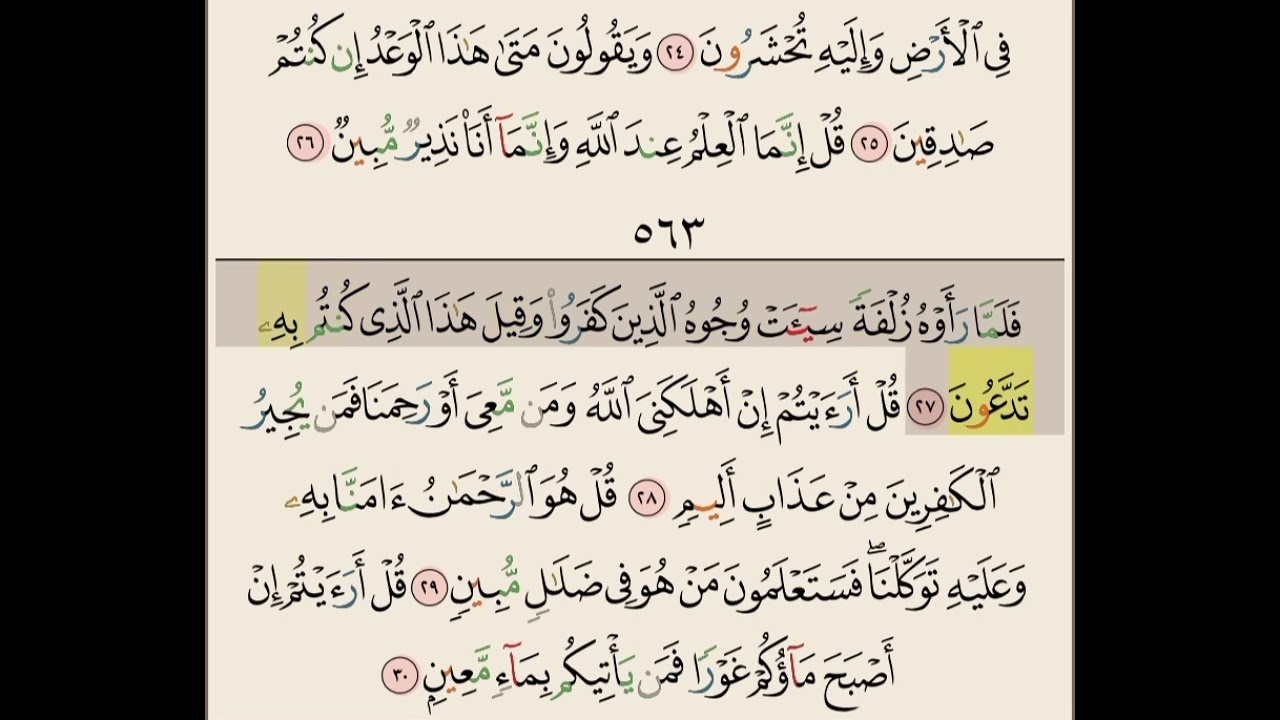 فِي ٱلْأَرْضِ وَإِلَيْهِ تُحْشَرُونَ ٢٤ وَيَقُولُونَ مَتَىٰ هَٰذَا ٱلْوَعْدُ إِن كُنتُمْ
صَٰدِقِينَ ٢٥ قُلْ إِنَّمَا ٱلْعِلْمُ عِندَ ٱللَّهِ وَإِنَّمَآ أَنَا۠ نَذِيرٌ مُّبِينٌ ٢٦
٥٦٣
فَلَمَّا رَأَوْهُ زُلْفَةً سِيٓـَٔتْ وُجُوهُ ٱلَّذِينَ كَفَرُوا۟ وَقِيلَ هَٰذَا ٱلَّذِى كُنتُم بِهِۦ
تَدَّعُونَ ٢٧ قُلْ أَرَءَيْتُمْ إِنْ أَهْلَكَنِىَ ٱللَّهُ وَمَن مَّعِىَ أَوْ رَحِمَنَا فَمَن يُجِيرُ
ٱلْكَٰفِرِينَ مِنْ عَذَابٍ أَلِيمٍ ٢٨ قُلْ هُوَ ٱلرَّحْمَٰنُ ءَامَنَّا بِهِۦ
وَعَلَيْهِ تَوَكَّلْنَا ۖ فَسَتَعْلَمُونَ مَنْ هُوَ فِى ضَلَٰلٍ مُّبِينٍ ٢٩ قُلْ أَرَءَيْتُمْ إِنْ
أَصْبَحَ مَآؤُكُمْ غَوْرًا فَمَن يَأْتِيكُم بِمَآءٍ مَّعِينٍۭ ٣٠